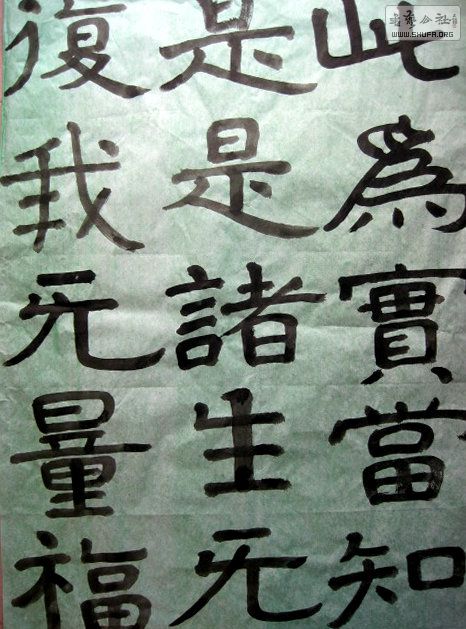 此爲實當知
是是諸生无
復我无量福
WWW.SHUFA.ORG